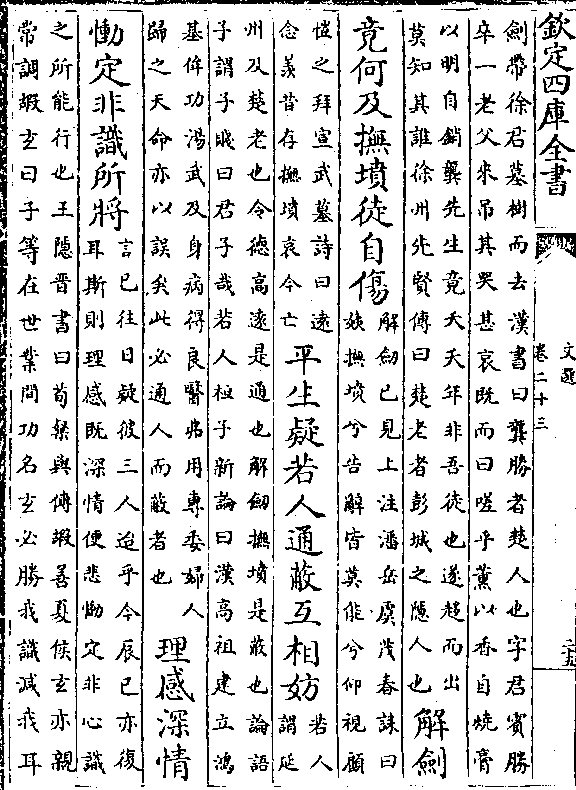 欽定四庫全書
文選
卷二十三
劒帶徐君墓樹而去漢書曰龔勝者楚人也字君賓勝
卒一老父來吊其哭甚哀既而曰嗟乎薰以香自燒膏
以明自銷龔先生竟夭天年非吾徒也遂趨而出
莫知其誰徐州先賢傳曰楚老者彭城之隱人也
解劍
竟何及撫墳徒自傷
解劒已見上注潘岳虞茂春誄曰
姨撫墳兮告辭皆莫能兮仰視顧
愷之拜宣武墓詩曰遠
念羨昔存撫墳哀今亡
平生疑若人通蔽互相妨
若人
謂延
州及楚老也令德高遠是通也解劒撫墳是蔽也論語
子謂子賤曰君子哉若人桓子新論曰漢高祖建立鴻
基侔功湯武及身病得良醫弗用專委婦人
歸之天命亦以誤矣此必通人而蔽者也
理感深情
慟定非識所將
言已往日疑彼三人迨乎今辰已亦復
耳斯則理感既深情便悲慟定非心識
之所能行也王隱晉書曰荀粲與傅嘏善夏侯玄亦親
常謂嘏玄曰子等在世業間功名玄必勝我識減我耳